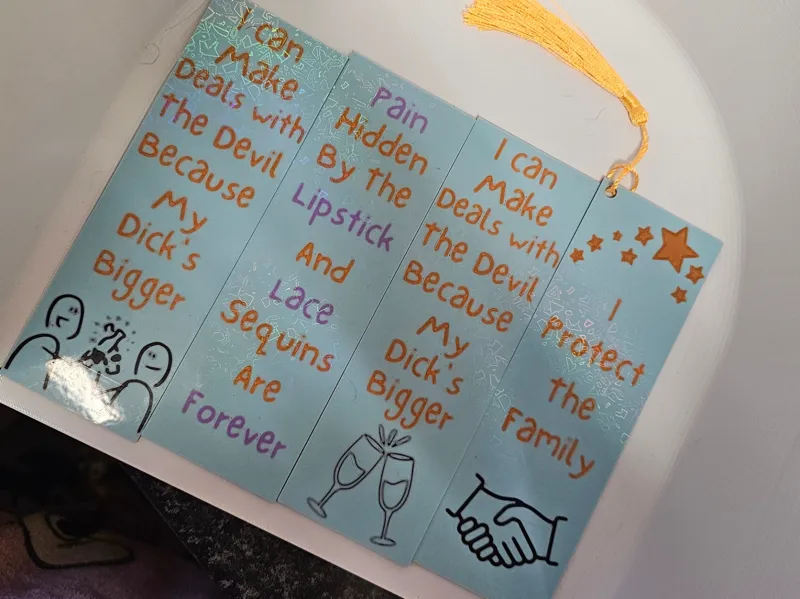 I can
Make
Deals with
The Devil
Because
My
Dick's
Bigger
Pain
Hidden
By the
Lipstick
And
Lace
Sequins
Are
Forever
I can
Make
Deals with
The Devil
Because
My
Dick's
Bigger
I
Protect
the
Family